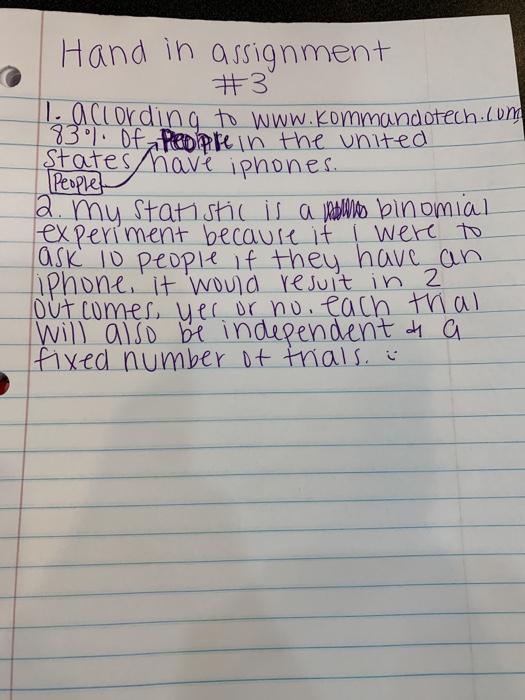 Hand in assignment
#3
1. according to www.kommandotech.com
83% of People in the united
states have iphones.
People
2. my statistic is a binomial
experiment because if i were to
ask 10 people if they have an
iphone, it would result in 2
outcomes, yes or no. each trial
will also be independent & a
fixed number of trials. :)